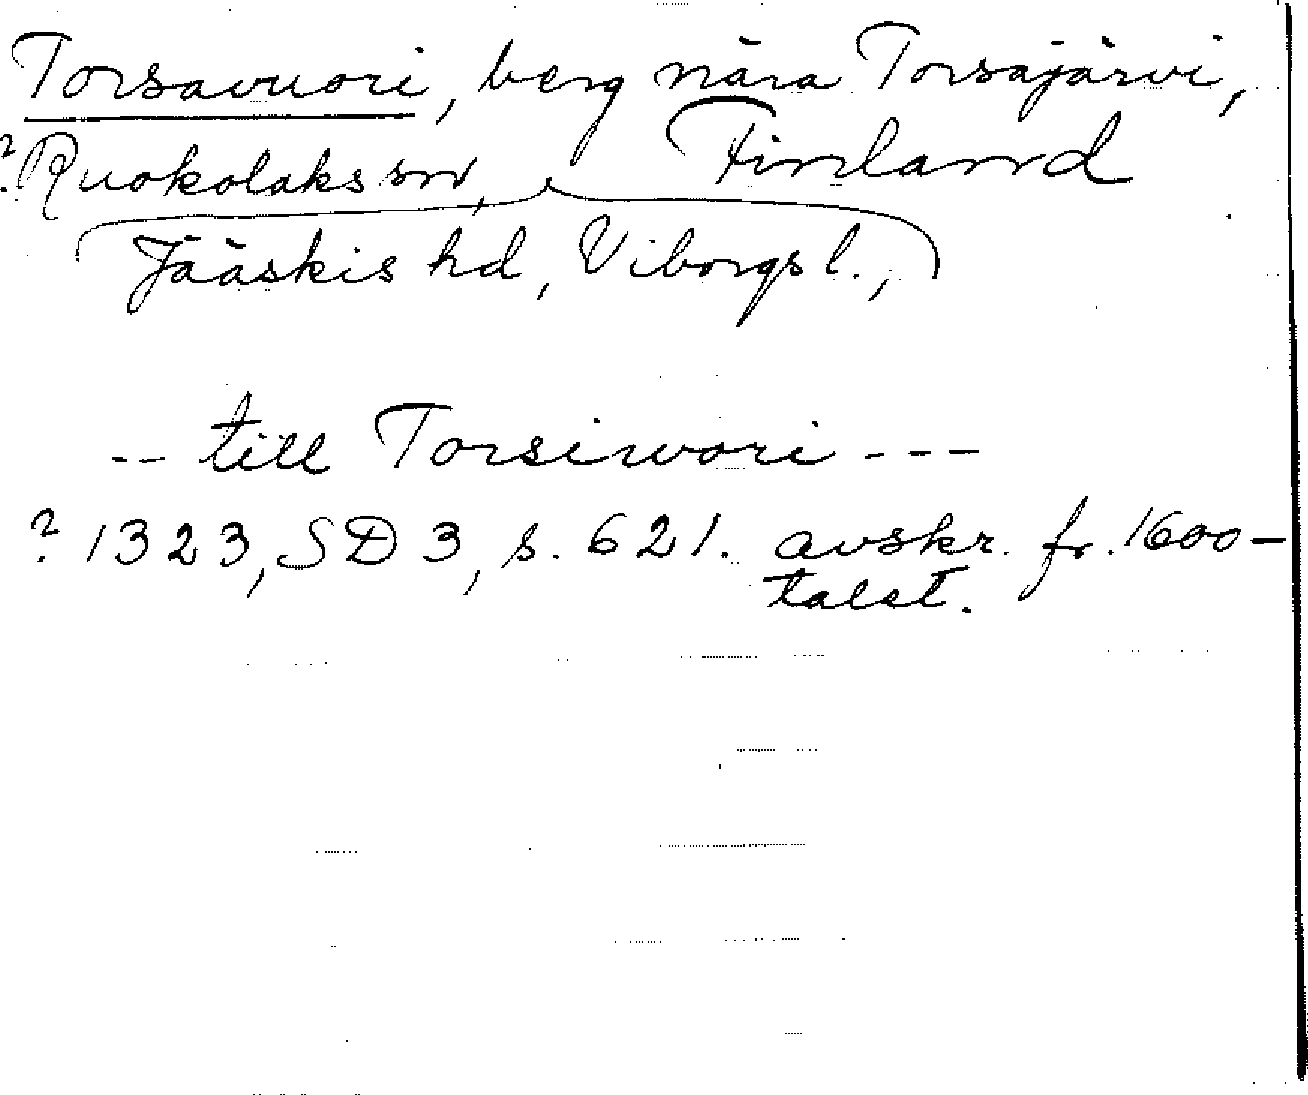 Torsavuori, berg nära Torsajärvi,
? Ruokolaks sn, Finland
Jääskis hd, Viborgs l.,
-- till Torsiwori ---
? 1323, SD 3, s. 621. avskr. fr. 1600-
talet.